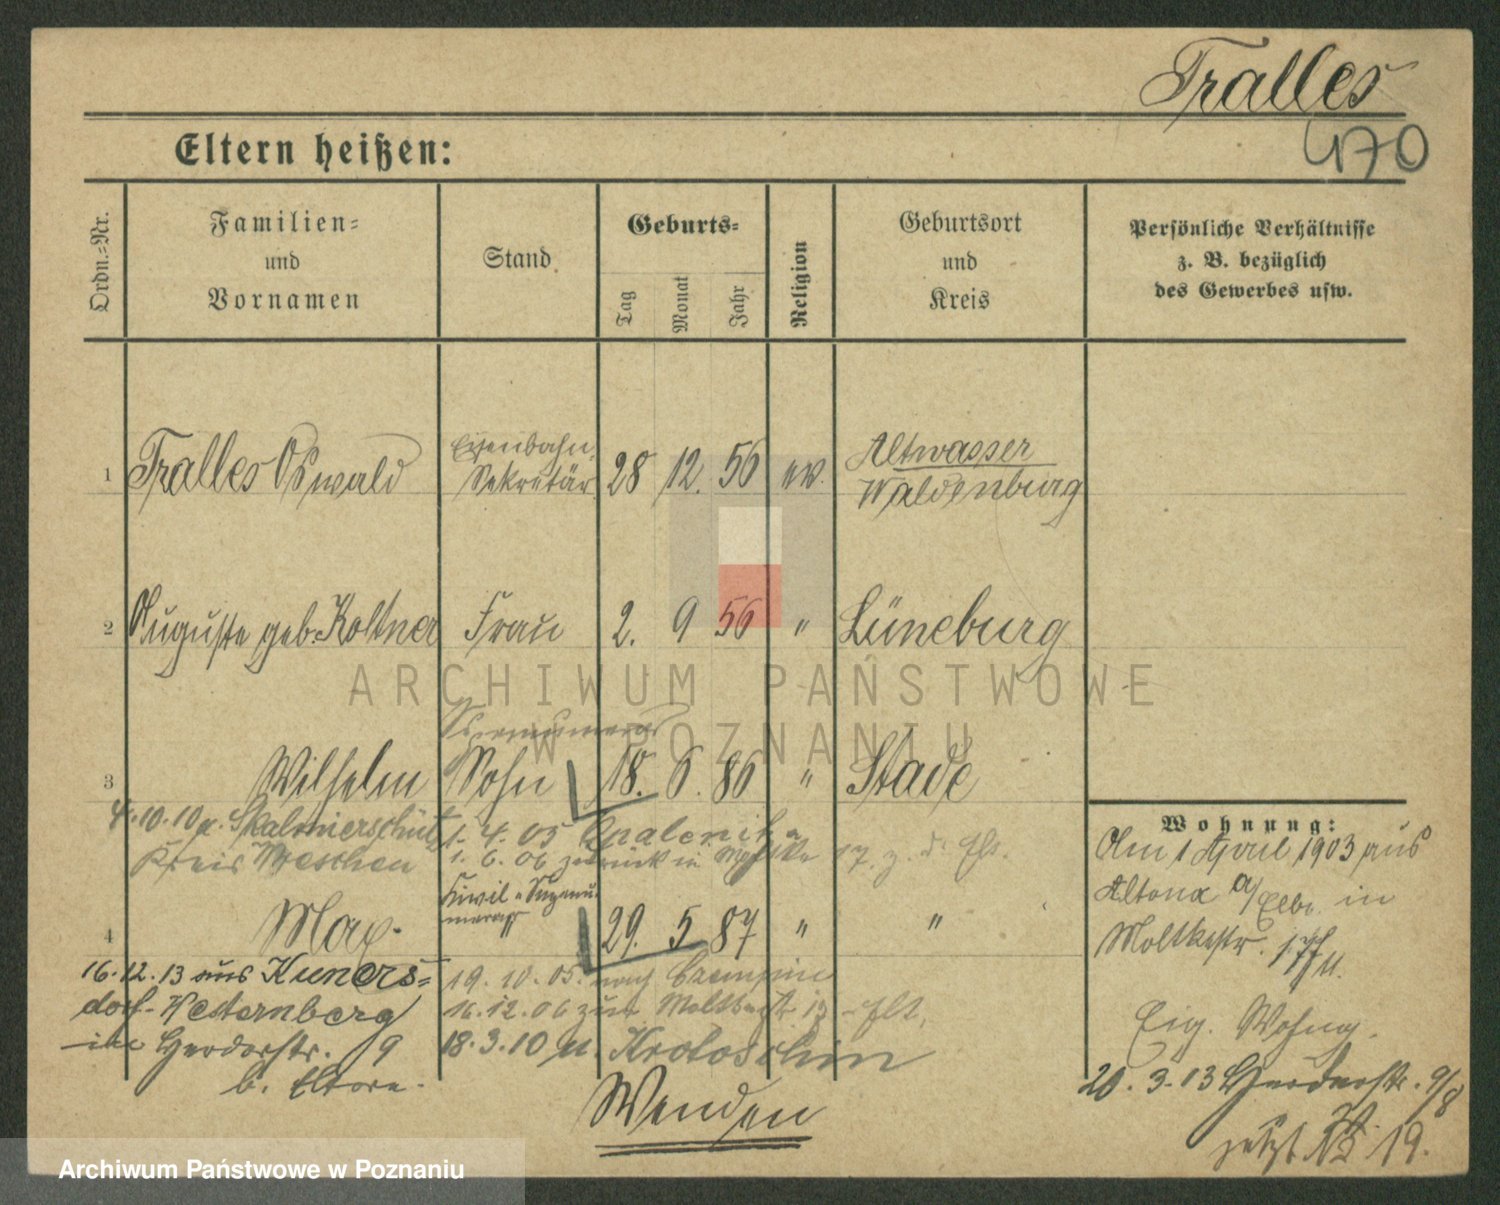 Tralles
470
Eltern heißen:
Ordn.-Nr.
Familien-
und
Vornamen
Stand
Geburts-
Tag
Monat
Jahr
Religion
Geburtsort
und
Kreis
Persönliche Verhältnisse
z. B. bezüglich
des Gewerbes usw.
1 Tralles Oswald
Eisenbahn-
Sekretär
28 12. 56 ev.
Altwasser
Waldenburg
2 Auguste geb. Koltner Frau 2. 9 56 " Lüneburg
ARCHIWUM PAŃSTWOWE
W POZNANIU
3 Wilhelm Sohn 18. 6. 86 " Stade
4.10.10
Kreis Wreschen
1. 4. 05 Opalenitza
1. 6. 06 zurück in
4 Max.
29. 5 87 " "
16.12.13 aus Kuners-
dorf-Westernberg
in Herderstr. 9
b. Eltern.
19. 10. 05. nach Czempin
16.12.06 zur Moltkestr 17
18.3.10 n. Krotoschin
Wenden
Wohnung:
Am 1 April 1903 aus
Altona a/Elbe in
Moltkestr. 17
Eig. Wohng.
20. 3. 13 Herderstr. 9/8
jetzt 19.
Archiwum Państwowe w Poznaniu